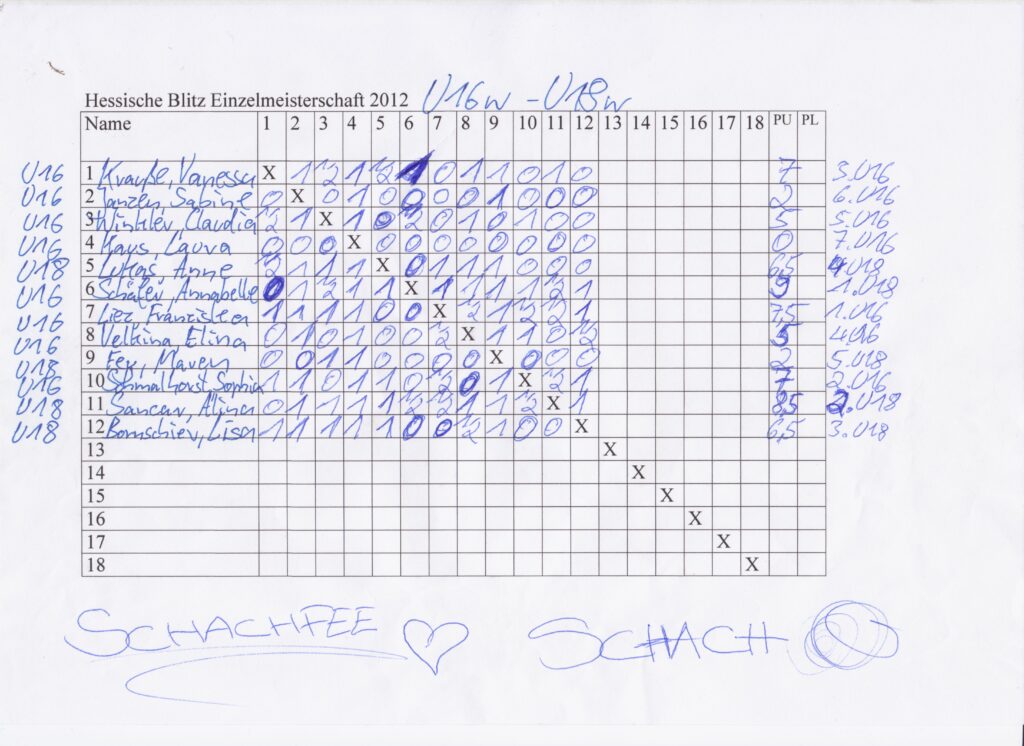 Hessische Blitz Einzelmeisterschaft 2012 U16w - U18w
Name 1 2 3 4 5 6 7 8 9 10 11 12 13 14 15 16 17 18 PU PL
U16 1 Krauße, Vanessa X 1 ½ 1 ½ 1 0 1 1 0 1 0 7 3.U16
U16 2 Sabine 0 X 0 1 0 0 0 0 1 0 0 0 2 6.U16
U16 3 Winkler, Claudia ½ 1 X 1 0 ½ 0 1 0 1 0 0 5 5.U16
U16 4 Laura 0 0 0 X 0 0 0 0 0 0 0 0 0 7.U16
U18 5 Lukas, Anne ½ 1 1 1 X 0 1 1 1 0 0 0 6,5 4.U18
U16 6 Schäfer, Annabelle 0 1 ½ 1 1 X 1 1 1 1 ½ 1 9 1.U18
U16 7 Franziska 1 1 1 1 0 0 X ½ 1 ½ ½ 1 7,5 1.U16
U16 8 Elina 0 1 0 1 0 0 ½ X 1 1 0 ½ 5 4.U16
U18 9 Fey, Maren 0 0 1 1 0 0 0 0 X 0 0 0 2 5.U18
U16 10 Schmalhorst, Sophia 1 1 0 1 1 0 ½ 0 1 X ½ 1 7 2.U16
U18 11 Sancar, Alina 0 1 1 1 1 ½ ½ 1 1 ½ X 1 8,5 2.U18
U18 12 Bornschier, Lisa 1 1 1 1 1 0 0 ½ 1 0 0 X 6,5 3.U18
13 X
14 X
15 X
16 X
17 X
18 X
SCHACHFEE SCHACH